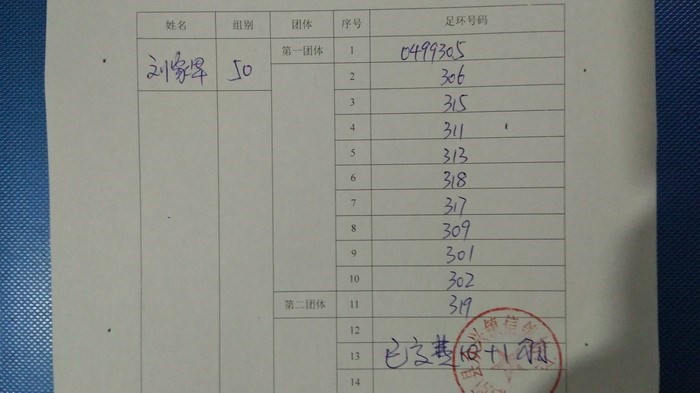 姓名 组别 团体 序号 足环号码
刘家军 50 第一团体 1 0499305
2 306
3 315
4 311
5 313
6 318
7 317
8 309
9 301
10 302
第二团体 11 319
12
13 已交费 10+1
14